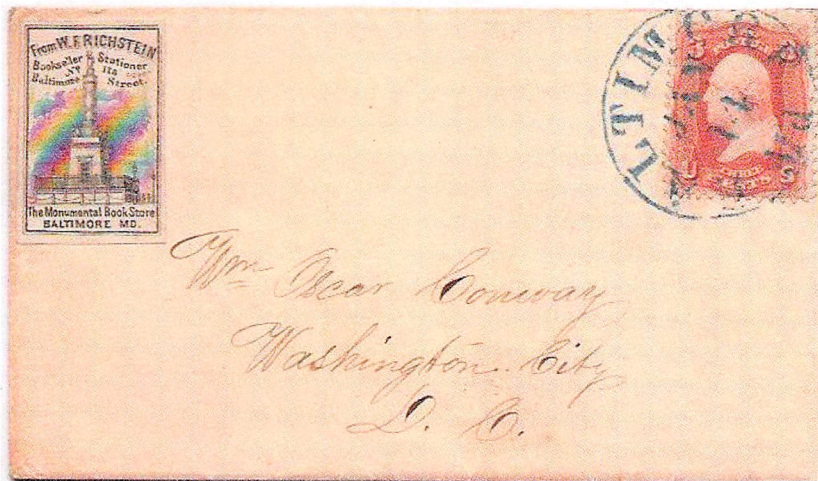 From W. F. RICHSTEIN
Bookseller & Stationer
Baltimore Street.
The Monumental Book Store
BALTIMORE MD.
LTIMORE
JAN
U S
Wm Oscar Conway
Washington City
D. C.